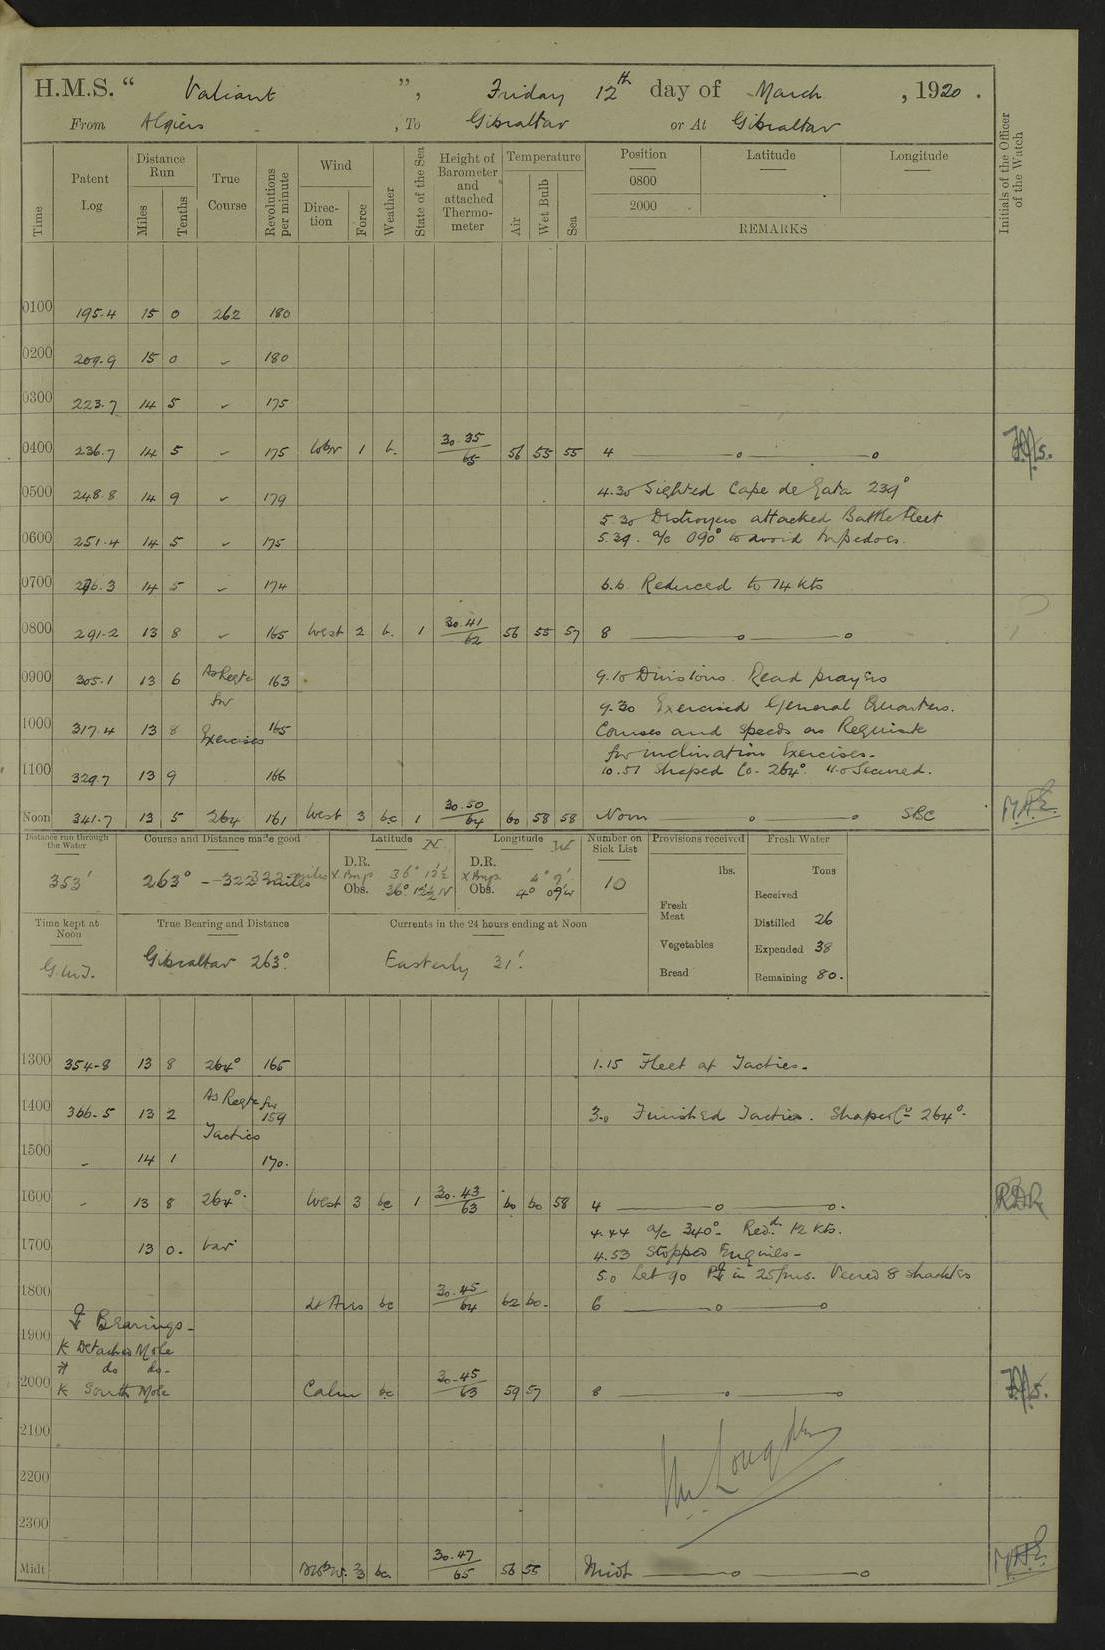 H.M.S. “ Valiant ”, Friday 12th day of March, 1920.
From Algiers, To Gibraltar or At Gibraltar
Time Patent Log Distance Run Miles Tenths True Course Revolutions per minute Wind Direction Force Weather State of the Sea Height of Barometer and attached Thermometer Temperature Air Wet Bulb Sea Position 0800 2000 Latitude Longitude REMARKS Initials of the Officer of the Watch
0100 195.4 15 0 262 180
0200 209.9 15 0 〃 180
0300 223.7 14 5 〃 175
0400 236.7 14 5 〃 175 1 b. 30.35 65 56 55 55 4
0500 248.8 14 9 〃 179 4.30 Sighted Cape de Gata 239°
5.30 Destroyers attacked Battle Fleet
0600 251.4 14 5 〃 175 5.39. a/c 090° to avoid torpedoes.
0700 276.3 14 5 〃 174 6.6. Reduced to 14 Kts
0800 291.2 13 8 〃 165 West 2 b. 1 30.41 62 56 55 57 8
0900 305.1 13 6 As Reqte 163 9.10 Divisions. Read prayers
for 9.30 Exercised General Quarters.
1000 317.4 13 8 Exercises 165 Courses and speeds as Requisite
for inclination Exercises.
1100 329.7 13 9 166 10.57 Shaped Co. 264°. 11.0 Secured.
Noon 341.7 13 5 264 161 West 3 bc 1 30.50 64 60 58 58 Noon SBC
Distance run through the Water Course and Distance made good Latitude N Longitude W Number on Sick List Provisions received Fresh Water
353' 263° - 323 miles D.R. 36° 13½ D.R. 4° 9' 10 lbs. Tons
Obs. 36° 12½ N Obs. 4° 09' W Received
Fresh Meat Distilled 26
Time kept at Noon True Bearing and Distance Currents in the 24 hours ending at Noon
G.M.T. Gibraltar 263°. Easterly 31'. Vegetables Expended 38
Bread Remaining 80.
1300 354.8 13 8 264° 165 1.15 Fleet at Tactics.
1400 366.5 13 2 As Reqte for 159 3.0 Finished Tactics. Shaped Co 264°.
Tactics
1500 〃 14 1 170.
1600 〃 13 8 264°. West 3 bc 1 30.43 63 60 60 58 4
4.44 a/c 340°. Redd. 12 Kts.
1700 13 0. Var 4.53 Stopped Engines
5.0 Let go in 25 fms. Veered 8 shackles
1800 Lt Airs bc 30.45 64 62 60. 6
Bearings.
1900
Detached Mole
do do.
2000 South Mole Calm bc 30.45 63 59 57 8
2100
2200
2300
Midt bc 30.47 65 56 55 Midt